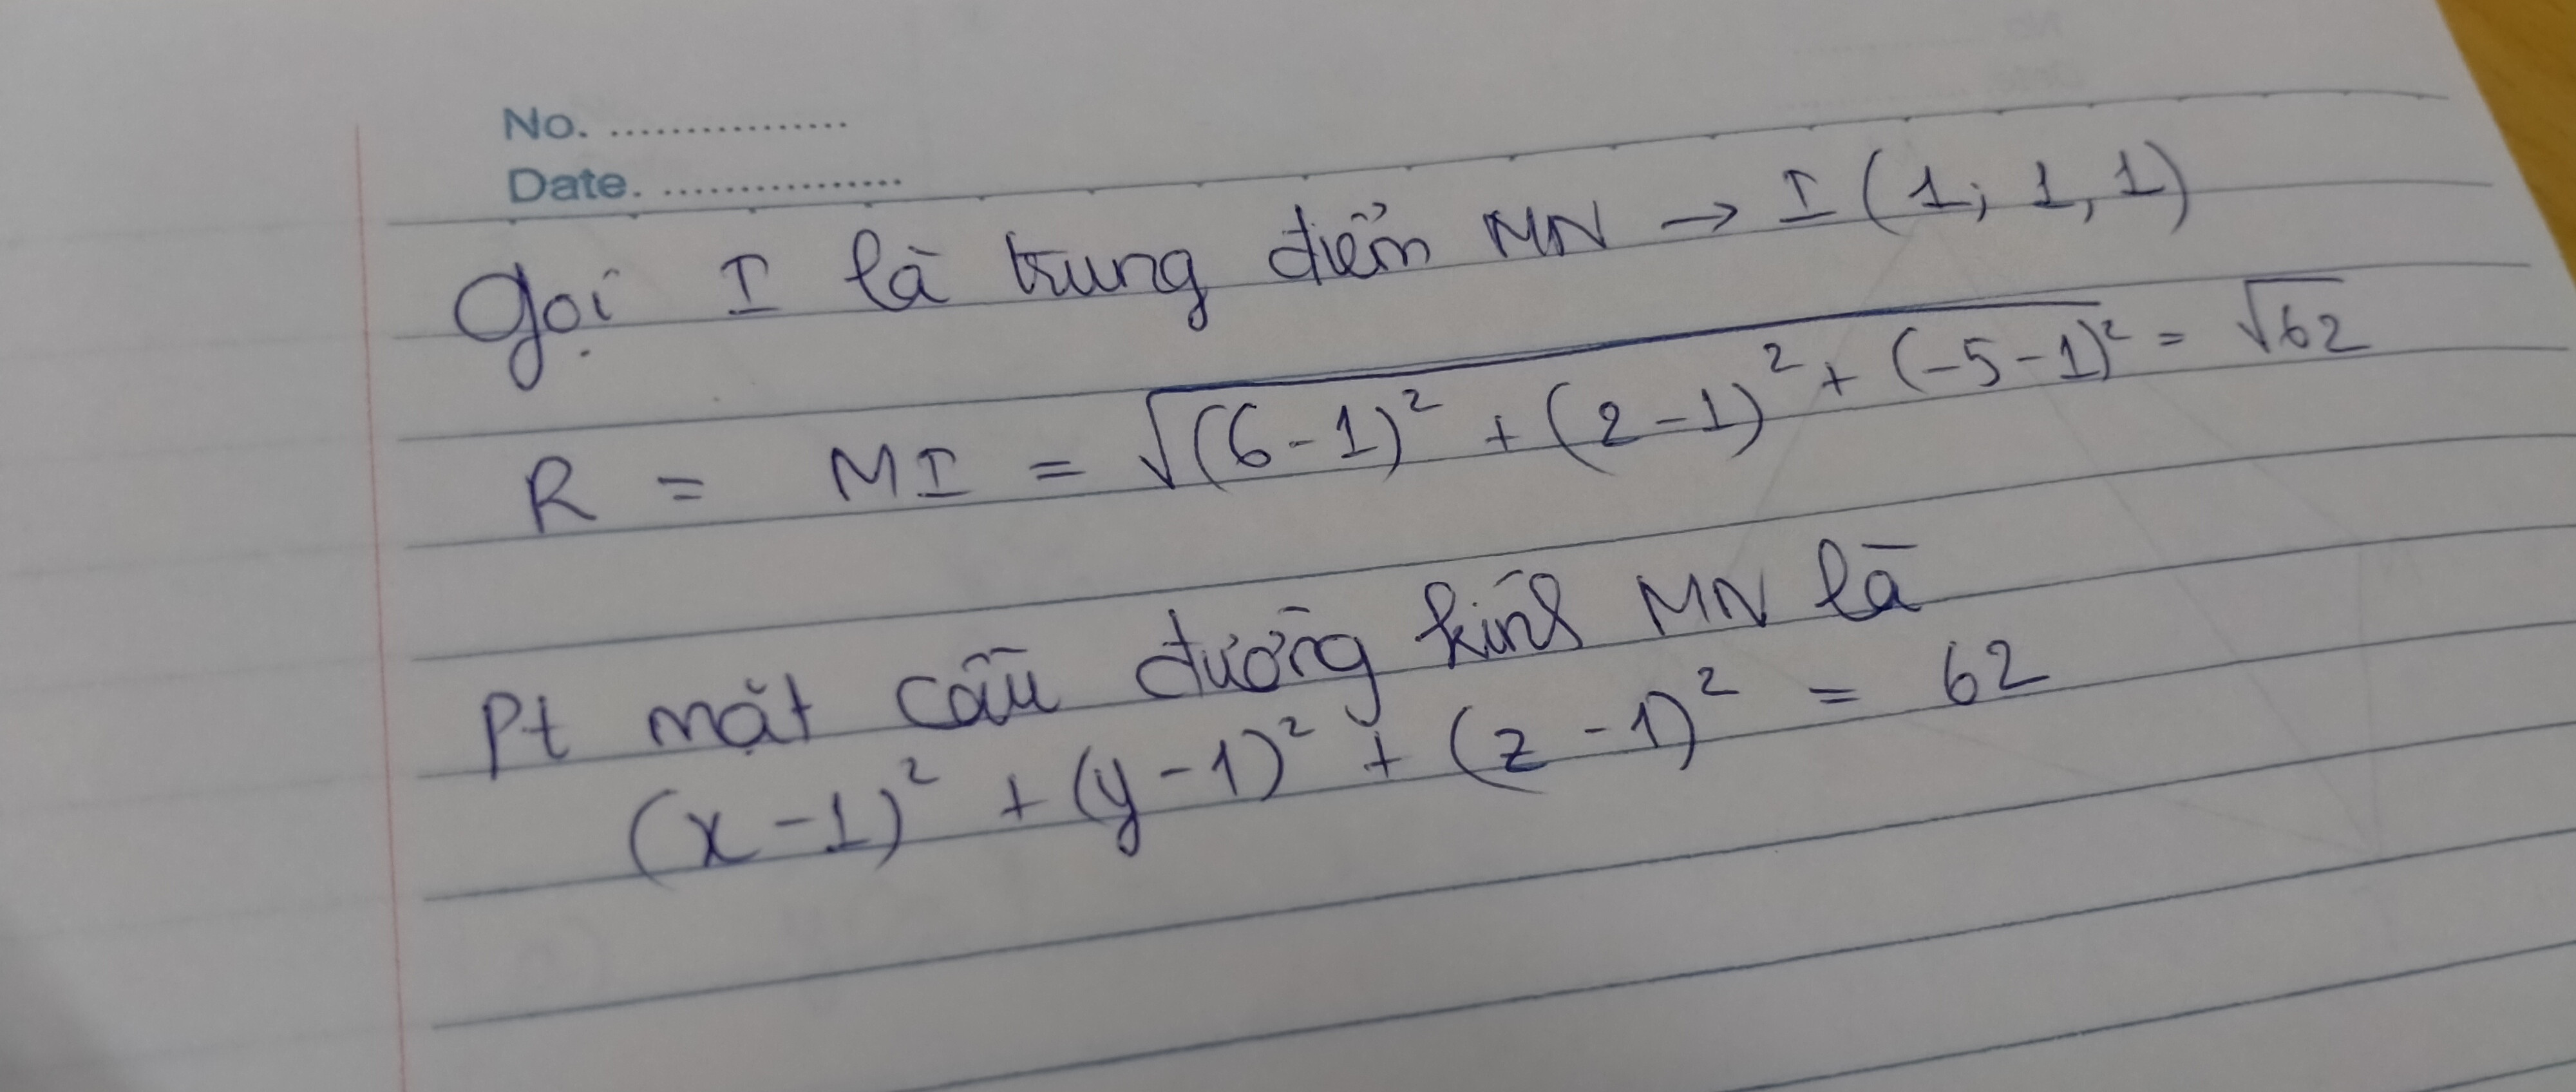 No. ................
Date. ................
Gọi I là trung điểm MN → I (1; 1, 1)
R = MI = √((6-1)² + (2-1)² + (-5-1)²) = √62
Pt mặt cầu đường kính MN là
(x-1)² + (y-1)² + (z-1)² = 62